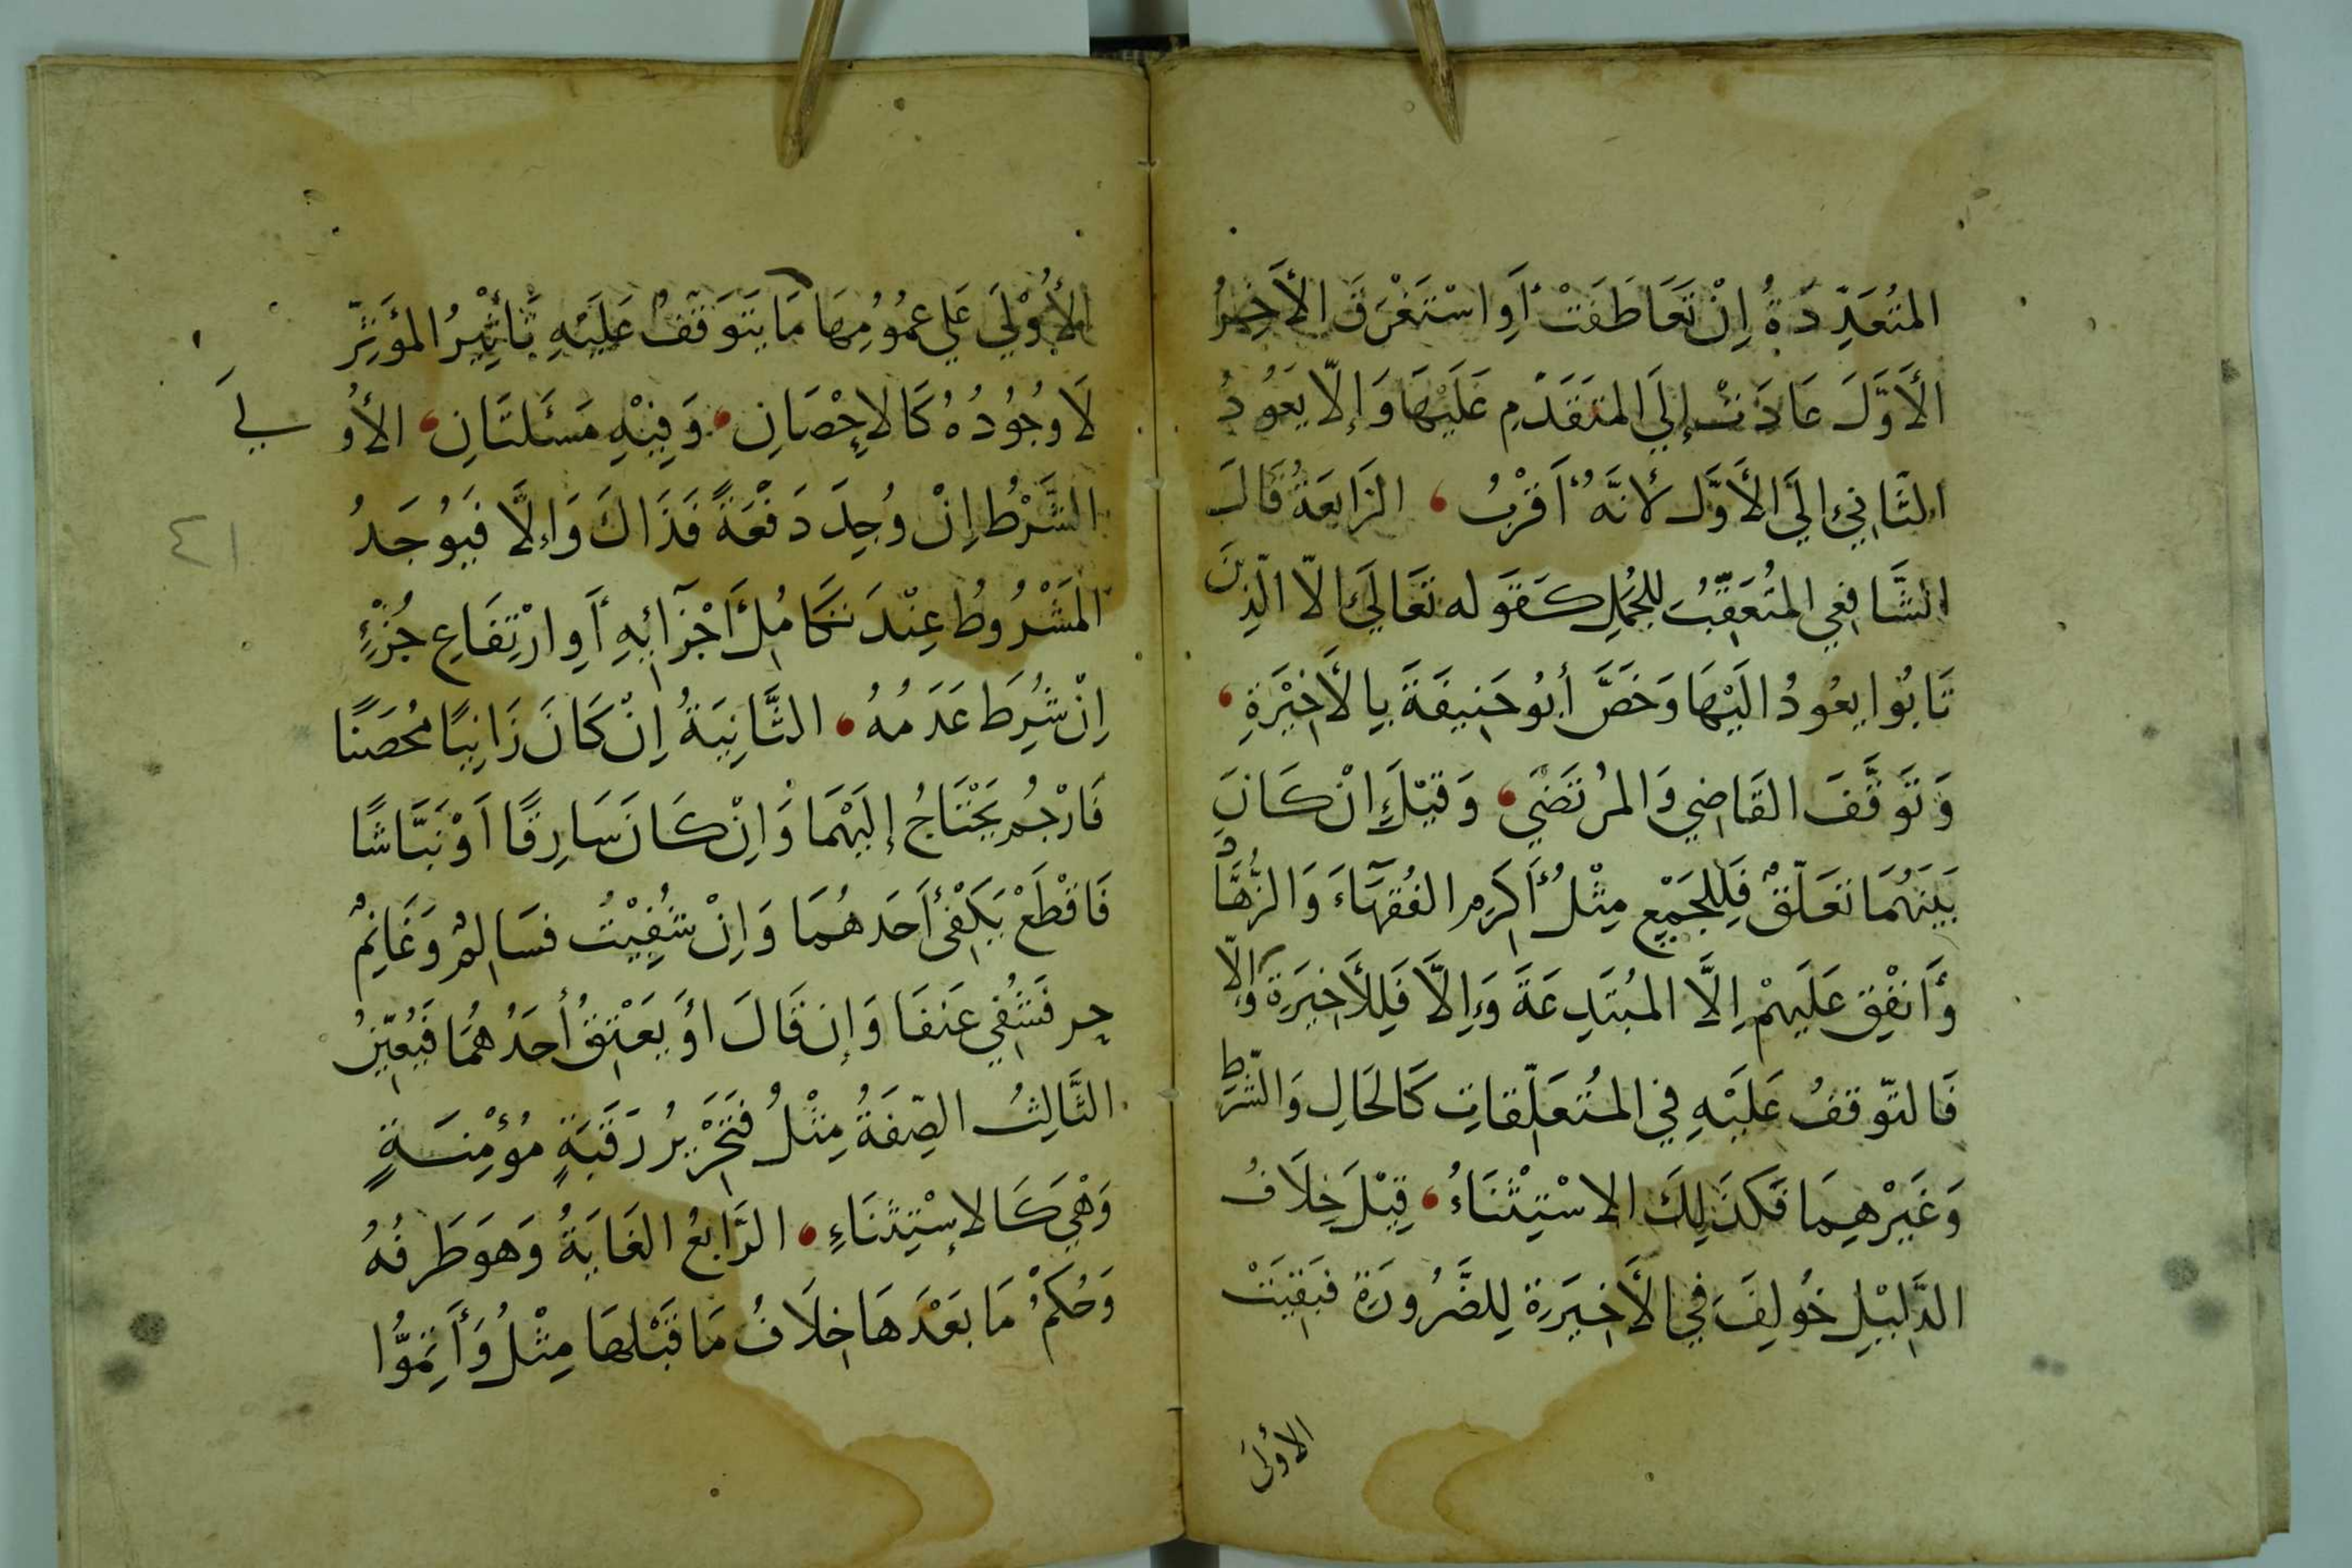 المتُعَدِّدَةُ اِنْ تَعَاطَفَتْ أَوِ اسْتَغْرَقَ الأَخِيرُ
الأَوَّلَ عَادَتْ إِلَى المتَقَدّمِ عَلَيْهَا وَإِلّا يَعُودُ
الثَّانِي إِلَى الأَوَّل لأنَّهُ أَقْرَبُ، الرَابعَةُ قَالَ
الشَّافِعِي المتُعَقِّبُ للجُمَلِ كَقَوله تَعَالَى الاّ الَّذِينَ
تَابُوا يعُودُ الَيْهَا وَخَصَّ أَبُو حَنِيفَةَ بِالأَخِيْرَةِ،
وَتَوَقَّفَ القَاضِي وَالمرُتَضَى، وَقيْلَ اِنْ كَانَ
بَيْنَهُمَا تَعَلّقٌ فَلِلجَمْيِعِ مِثْلُ أَكرِمِ الفُقَهَآءَ وَالزُّهَّادَ
وَأَنفِقْ عَلَيهِمْ اِلَّا المبُتَدِعَةَ وَاِلَّا فَلِلأَخِيرَةِ وَإلّا
فَالتّوقفُ عَلَيْهِ فِي المتُعَلّقاتِ كَالحَالِ وَالشَرطِ
وَغَيْرهِمَا فَكَذَلِكَ الاسْتِثْنَاءُ، قِيْلَ خِلَافُ
الدَّلِيْلِ خُولِفَ فِي الأَخِيرَةِ لِلضَّرُورَةِ فبَقِيَتْ
الأولَى
الأُوْلَى عَلى عمُوُمِهَا مَا يَتَوَقّفُ عَلَيْهِ تَأثِيْرُ المؤَثِّرِ
لَا وُجُودُهُ كَالاحْصَانِ، وَفِيْهِ مَسْئَلتَانِ، الأُو
لىَ
الشَّرْطُ اِنْ وُجِدَ دَفْعَةً فَذَاكَ وَإِلَّا فَيوُجَدُ
٤١
المَشْرُوطُ عِنْدَ تَكَامُلِ أَجْزَآئِهِ أَوِ ارْتِفَاعِ جُزْءٍ
اِنْ شُرِطَ عَدَمُهُ، الثَّانِيَةُ اِنْ كَانَ زَانِيًا مُحْصَنًا
فَارْجُم يَحْتَاجُ إِلَيْهَمَا وَاِنْ كَانَ سَارِقًا اَوْ نَبَّاشًا
فَاقْطَعْ يَكْفى أَحَدهُمَا وَاِنْ شُفِيْتُ فسَالِمٌ وَغَانِمٌ
حر فَشُفِي عَتَقَا وَإِن قَالَ اوْ يَعْتِقُ أَحَدُهُمَا فَيُعَيِّنُ
الثَّالِثُ الصِّفَةُ مِثْلُ فَتَحْرِيرُ رَقَبَةٍ مُؤْمِنَةٍ
وَهْيَ كَالاِسْتِثْنَاءِ، الرَّابِعُ الغَايَةُ وَهوَ طَرفُهُ
وَحُكمُ مَا بَعْدَهَا خِلَافُ مَا قَبْلهَا مِثْلُ وَأَتِمُّوا